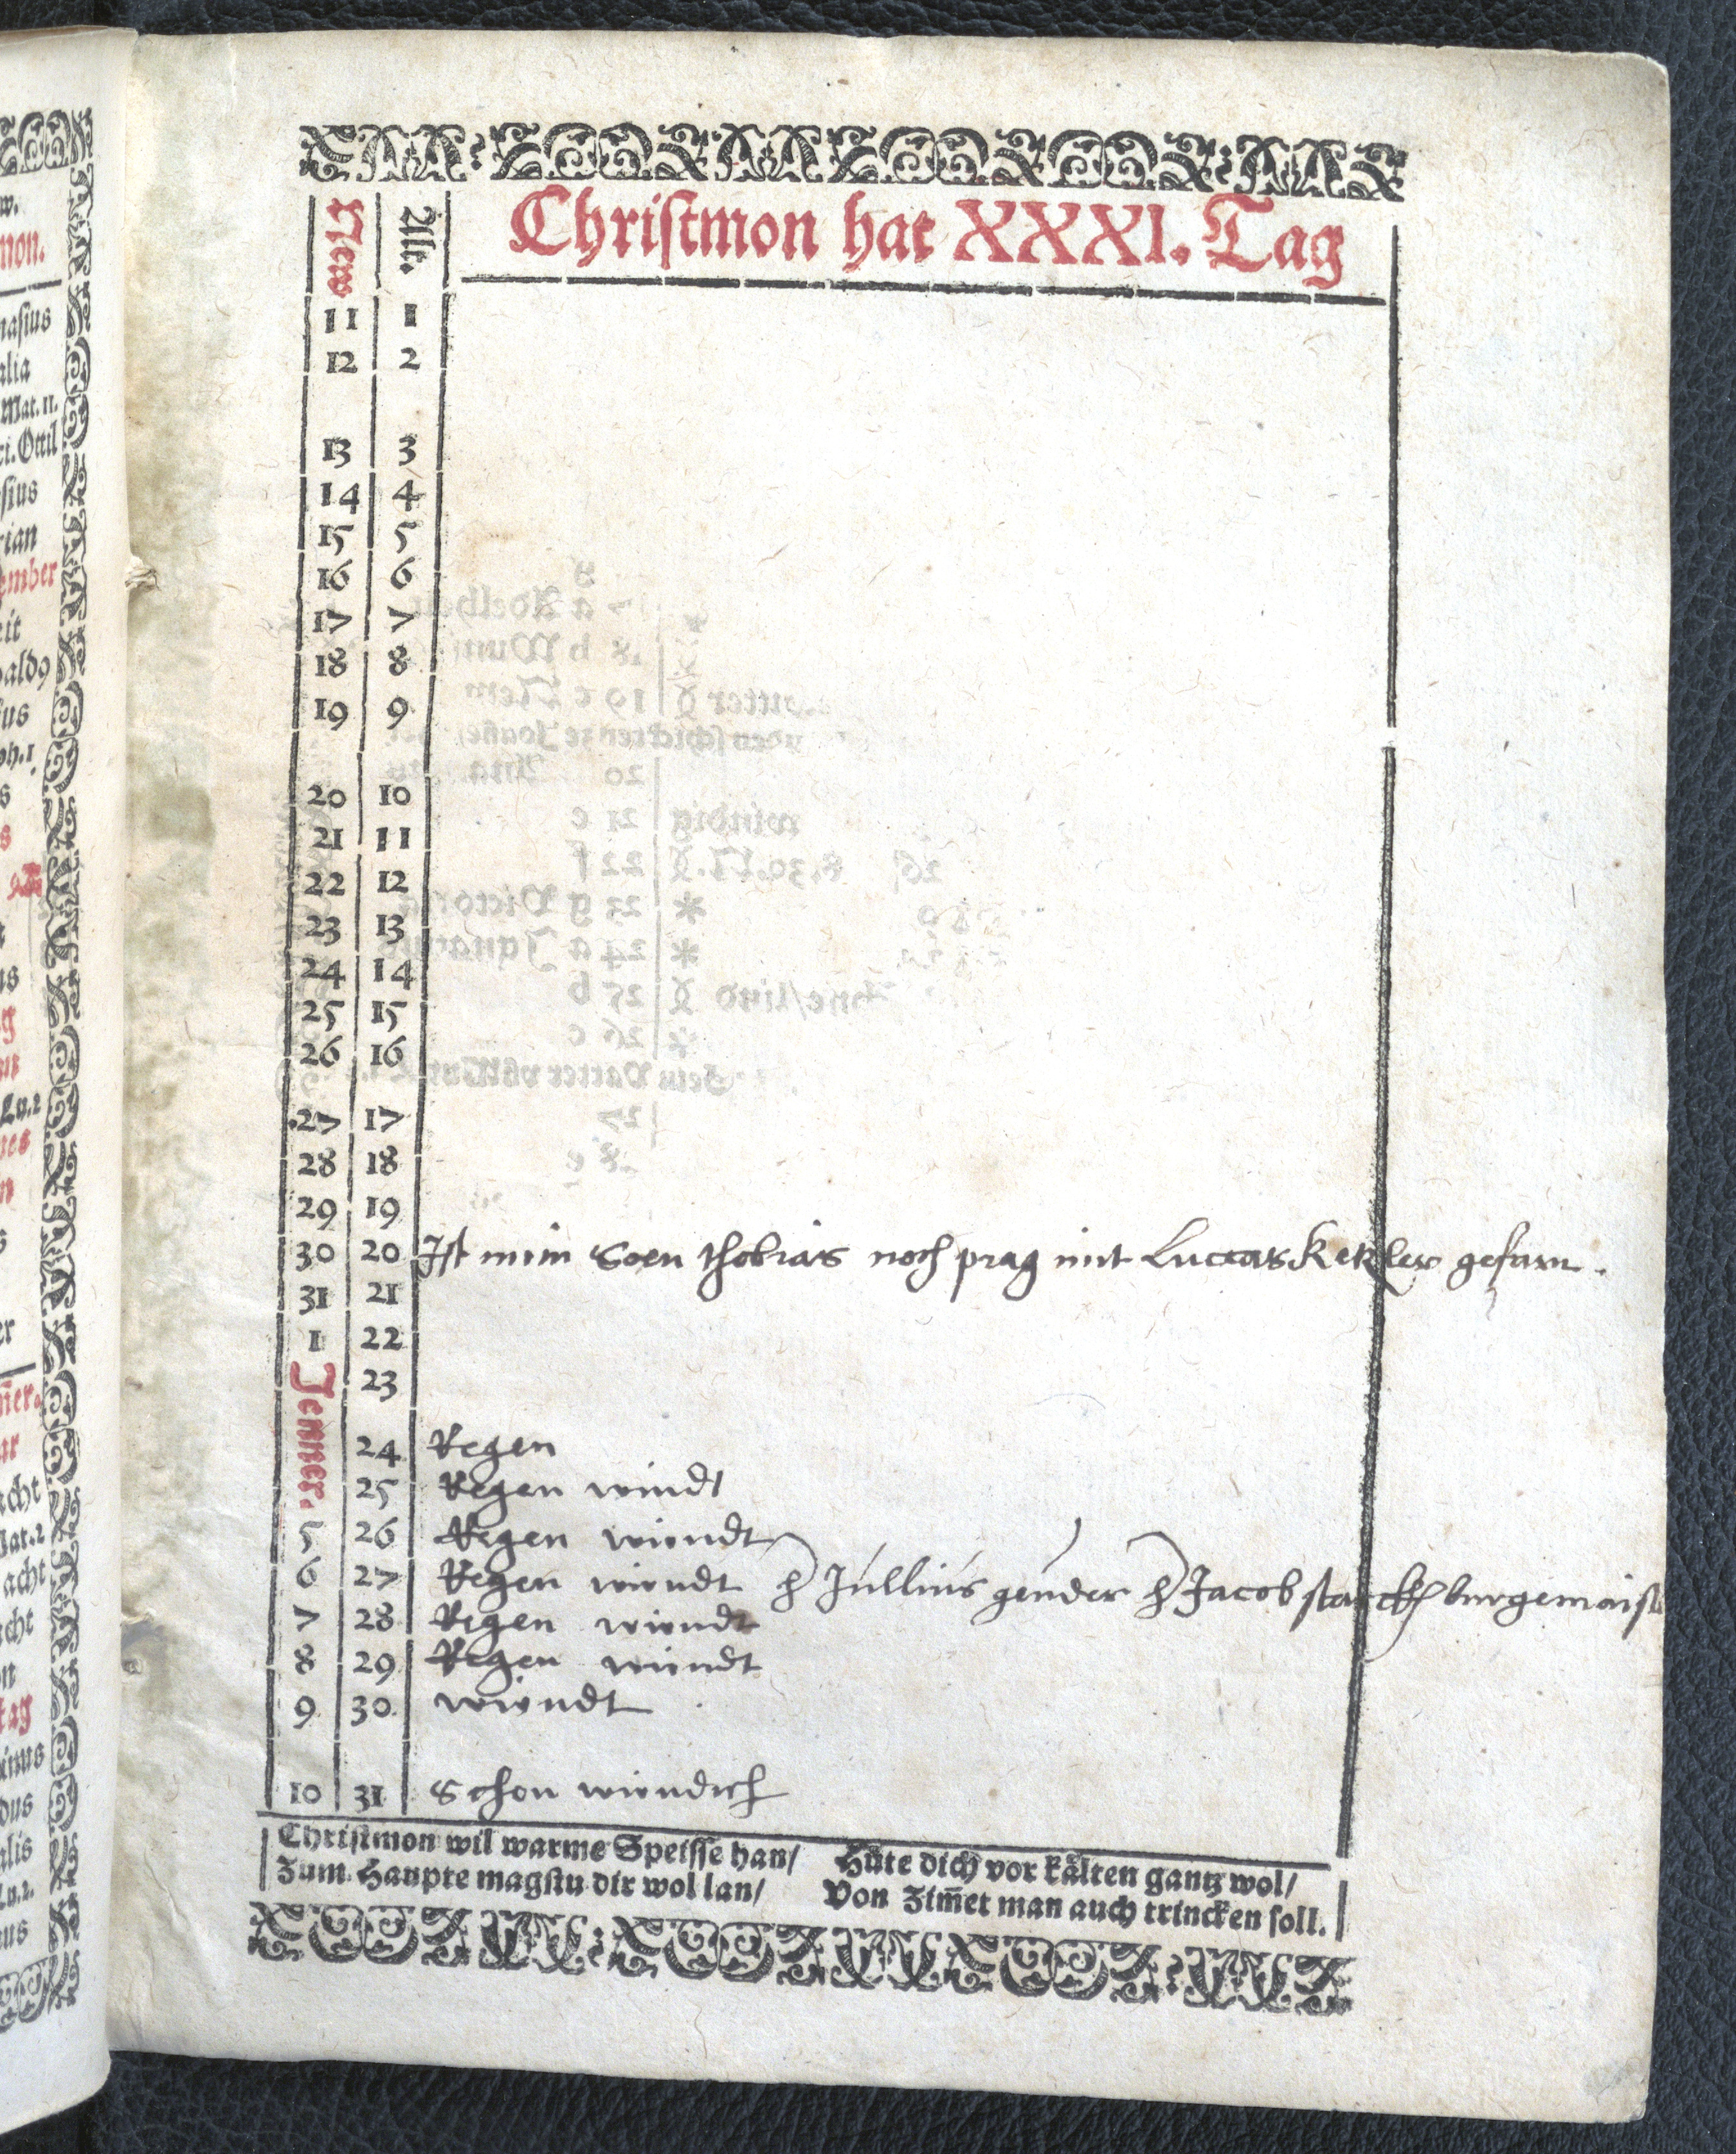 Christmon hat XXXI. Tag
New Alt.
11 1
12 2
13 3
14 4
15 5
16 6
17 7
18 8
19 9
20 10
21 11
22 12
23 13
24 14
25 15
26 16
27 17
28 18
29 19
30 20 Ist mein Soen thobias noch prag mit Luccas Ketzler gefarn.
31 21
1 22
Jenner. 23
24 Regen
25 Regen windt
5 26 Regen windt
6 27 Regen windt h Jullius geuder h Jacob starckh burgemaist
7 28 Regen windt
8 29 Regen windt
9 30 windt
10 31 Schon windich
Christmon wil warme Speisse han/
Zum Haupte magstu dir wol lan/
Hüte dich vor kälten gantz wol/
Von Zim̄et man auch trincken soll.